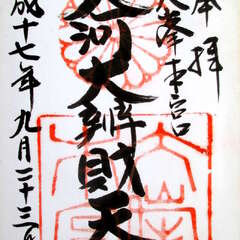 奉拝
大峯本宮
天河大辨財天
成十七年九月二十三日